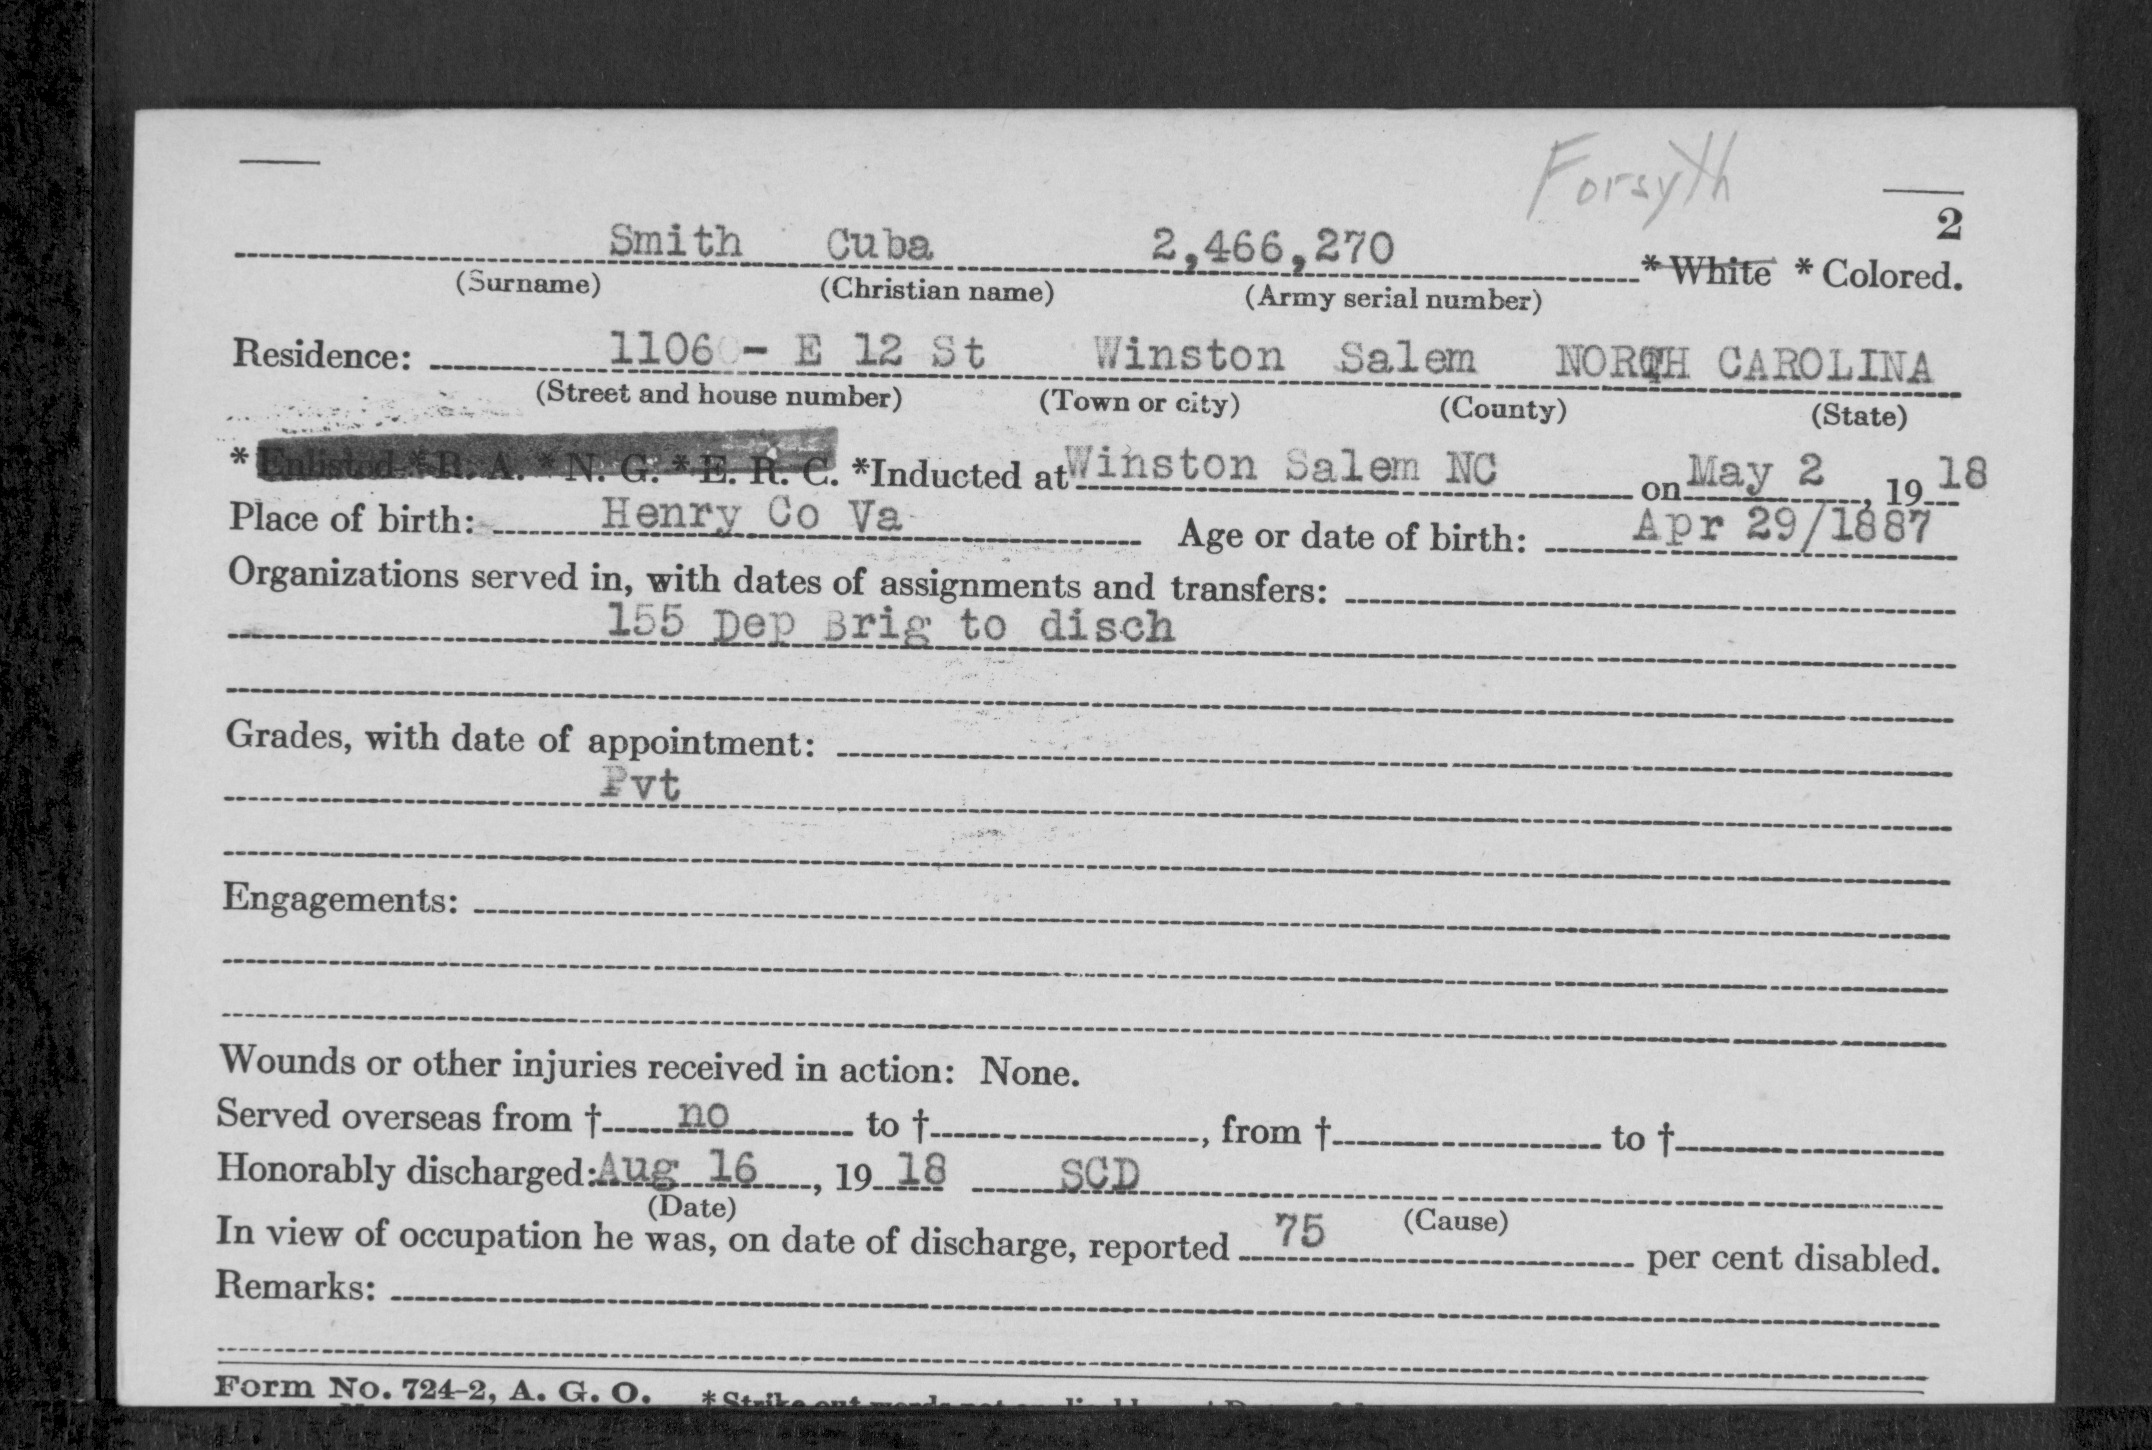 Forsyth
2
Smith Cuba 2,466,270 *White *Colored.
(Surname) (Christian name) (Army serial number)
Residence: 1106 - E 12 St Winston Salem NORTH CAROLINA
(Street and house number) (Town or city) (County) (State)
*Enlisted *R. A. *N. G. *E. R. C. *Inducted at Winston Salem NC on May 2, 1918
Place of birth: Henry Co Va Age or date of birth: Apr 29/1887
Organizations served in, with dates of assignments and transfers:
155 Dep Brig to disch
Grades, with date of appointment:
Pvt
Engagements:
Wounds or other injuries received in action: None.
Served overseas from † no to †, from † to †
Honorably discharged: Aug 16, 1918 SCD
(Date) (Cause)
In view of occupation he was, on date of discharge, reported 75 per cent disabled.
Remarks:
Form No. 724-2, A. G. O. *Strike out words not